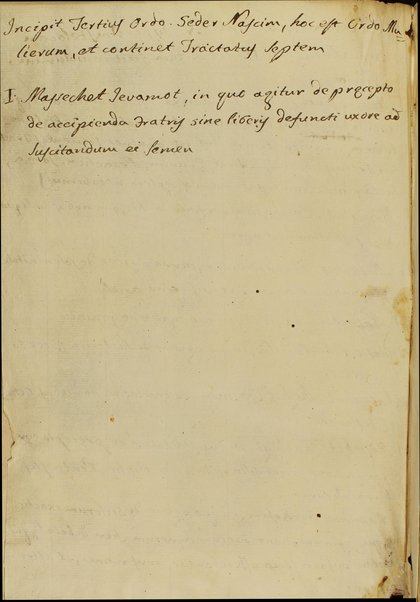 Incipit Tertius Ordo. Seder Nascim, hoc est Ordo Mu-
lierum, et continet Tractatus septem
I Massechet Jevamot, in quo agitur de precepto
de accipienda Fratris sine liberis defuncti uxore ad
suscitandum ei semen